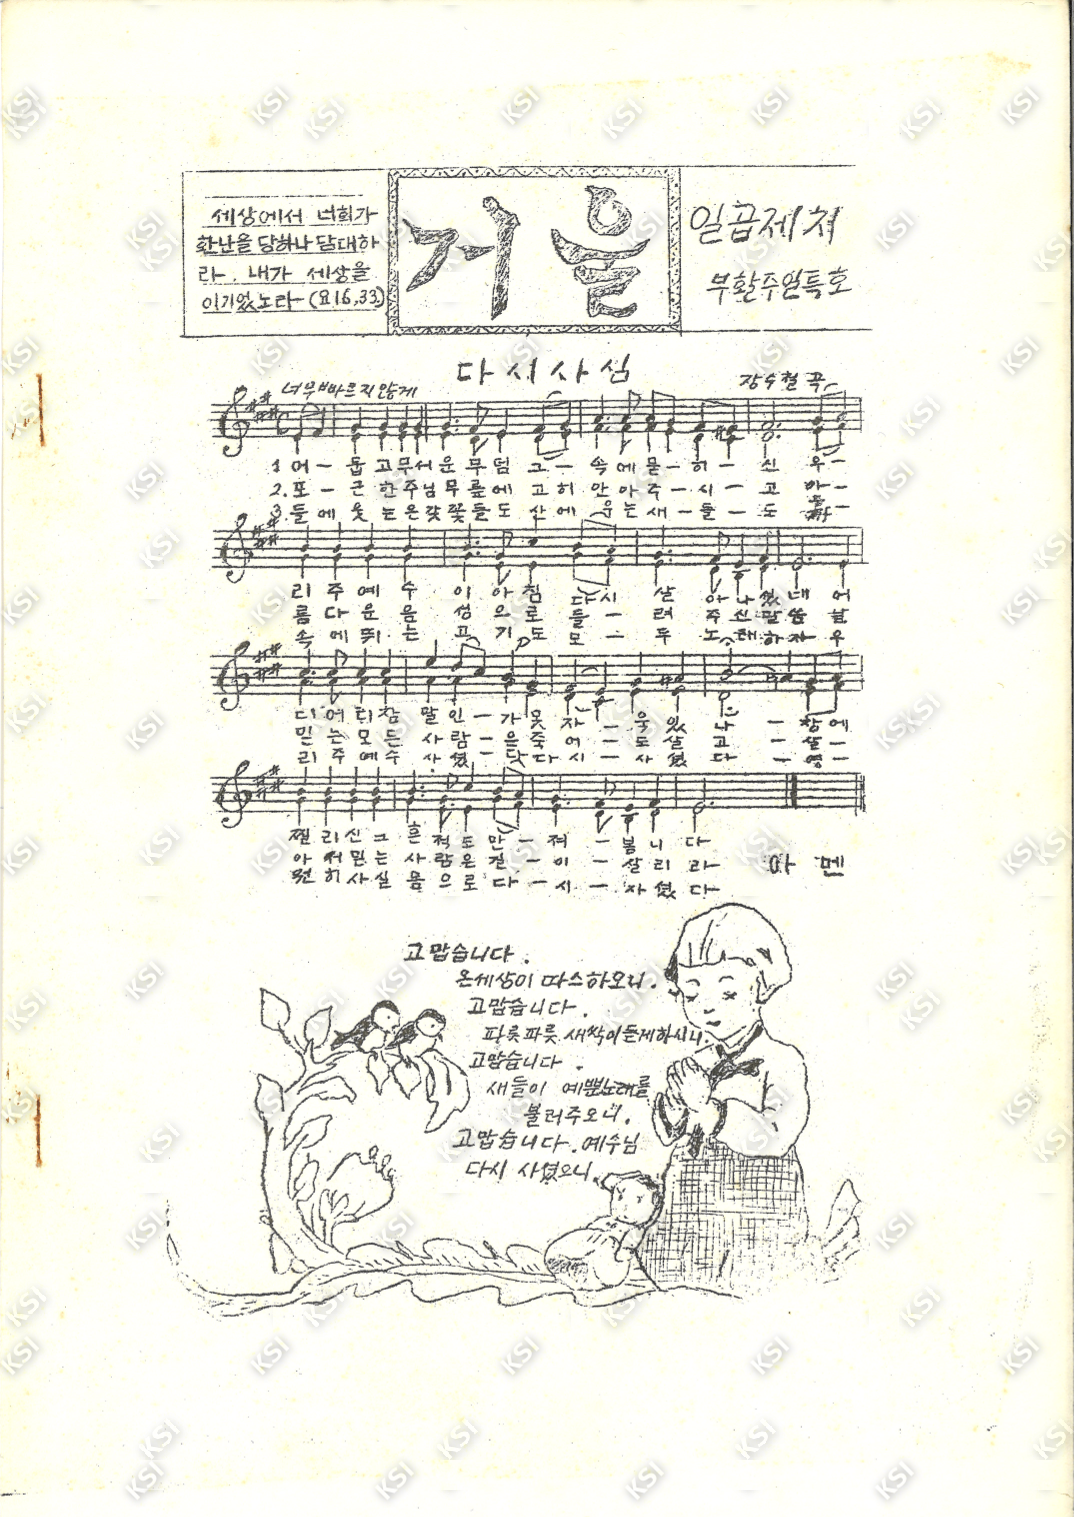 세상에서 너희가
환난을 당하나 담대하
라. 내가 세상을
이기었노라 (요16,33)
거울
일곱제쳐
부활주일특호
다시사심
너무빠르지않게
장수철 곡
1 어 - 둡 고 무서 운 무 덤 그 - 속 에 묻 - 히 - 신 우 -
2. 포 - 근 한 주님 무 릎 에 고 히 안 아 주 - 시 - 고 아 -
3. 들 에 웃 는 온갖 꽃 들 도 산 에 우 는 새 - 들 - 도
리 주 예 수 이 아 침 다 시 살 아 나 셨 네 어
름 다 운 음 성 으 로 들 - 려 주 신 말 씀 날
속 에 뛰 는 고 기 도 모 - 두 노 래 하 자 우
디 어 디 참 말 인 - 가 못 자 - 욱 있 나 - 창 에
믿 는 모 든 사 람 - 을 죽 어 - 도 살 고 - 살 -
리 주 예 수 사 셨 - 다 시 - 사 셨 다 - 영 -
찔 리 신 그 흔 적 도 만 - 져 - 봅 니 다
아 서 믿 는 사 람 은 길 - 이 - 살 리 라
원 히 사 실 몸 으 로 다 - 시 - 사 셨 다
아 멘
고맙습니다.
온세상이 따스하오니.
고맙습니다.
파릇파릇 새싹이돋게하시니.
고맙습니다.
새들이 예쁜노래를
불러주오니.
고맙습니다. 예수님
다시 사셨으니.
KSI